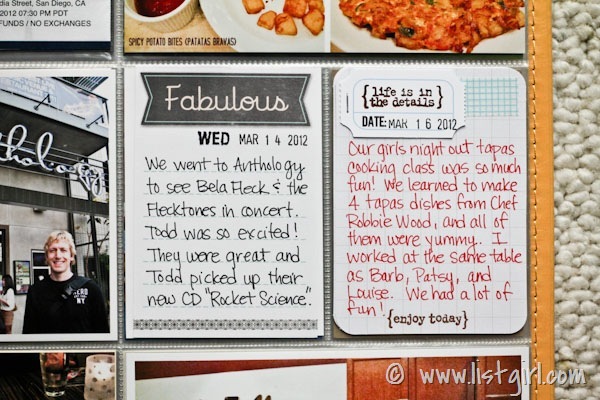 dia Street, San Diego, CA
2012 07:30 PM PDT
FUNDS / NO EXCHANGES
SPICY POTATO BITES (PATATAS BRAVAS)
nthology
Fabulous
WED MAR 14 2012
We went to Anthology
to see Bela Fleck & the
Flecktones in concert.
Todd was so excited!
They were great and
Todd picked up their
new CD "Rocket Science".
{life is in
the details}
DATE: MAR 16 2012
Our girls night out tapas
cooking class was so much
fun! We learned to make
4 tapas dishes from Chef
Robbie Wood, and all of
them were yummy. I
worked at the same table
as Barb, Patsy, and
Louise. We had a lot of
fun!
{enjoy today}
NY
© www.listgirl.com